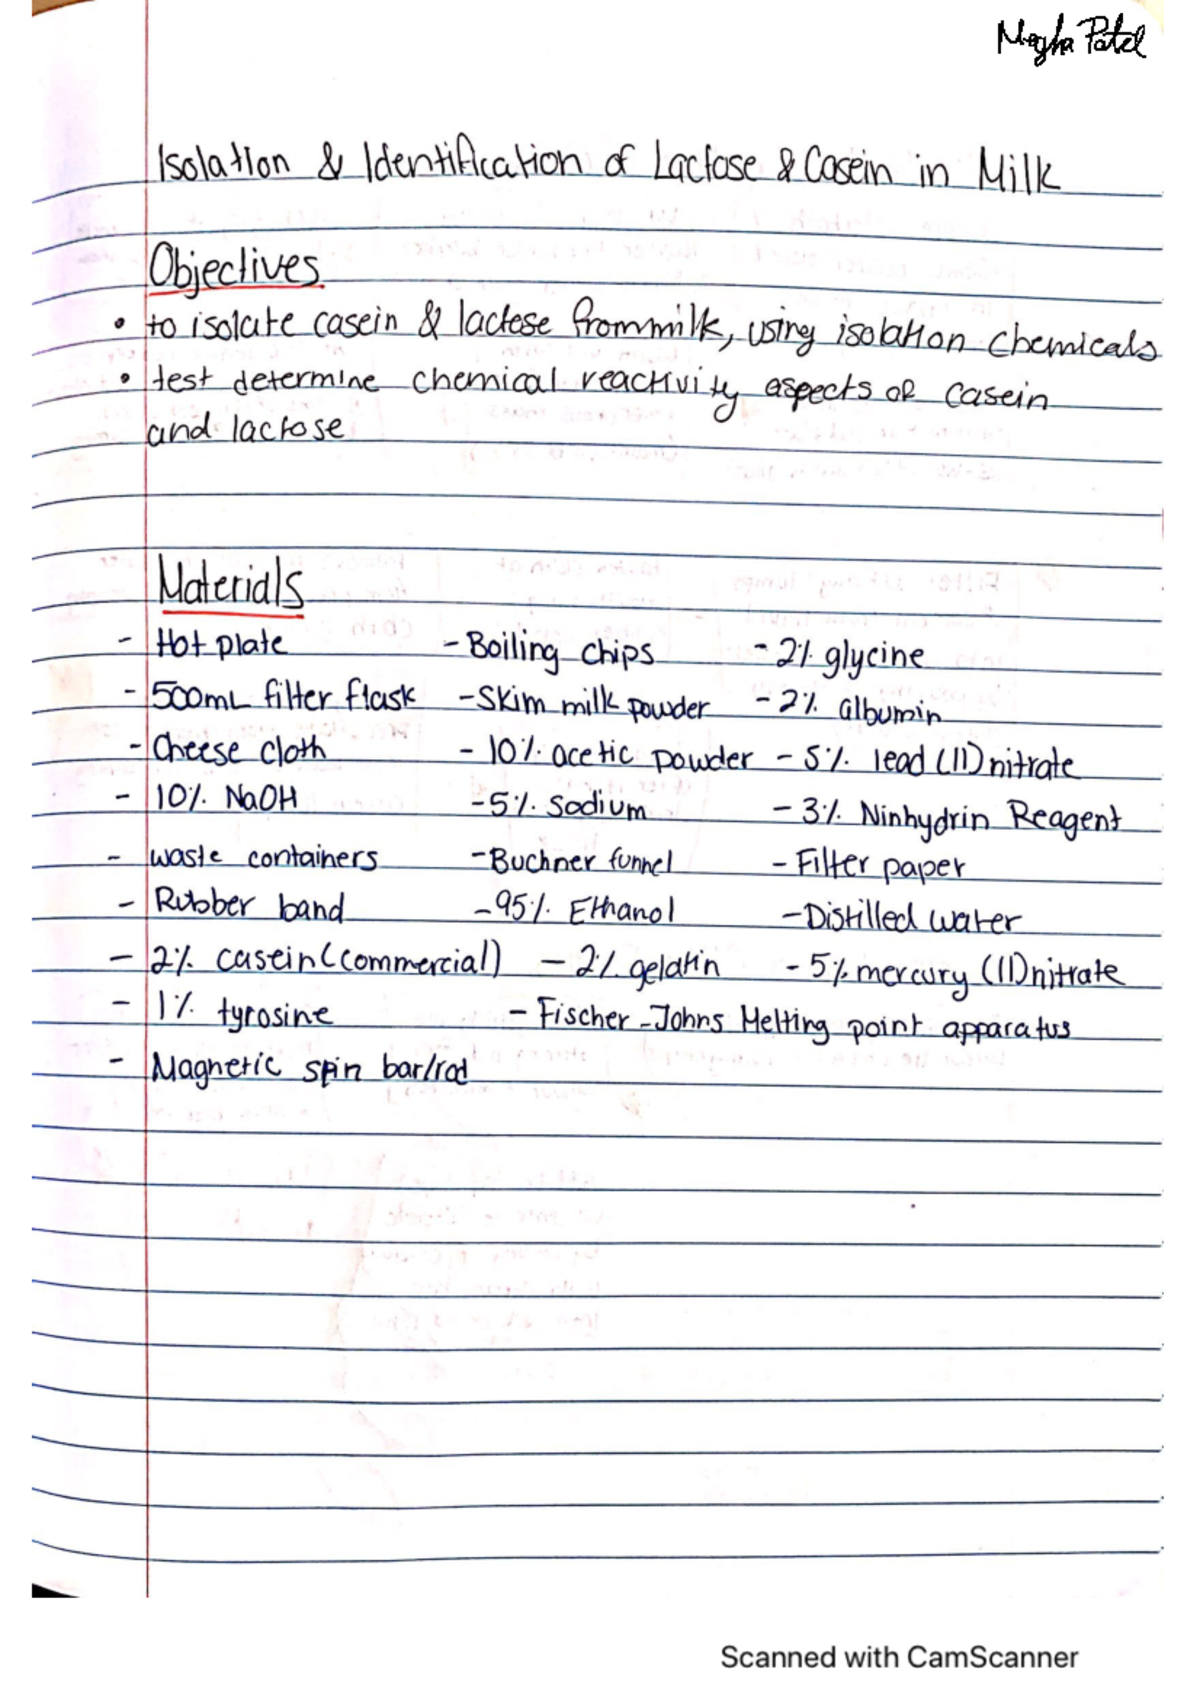 Megha Patel
Isolation & Identification of Lactose & Casein in Milk
Objectives
• to isolate casein & lactose from milk, using isolation chemicals
• test determine chemical reactivity aspects of casein
and lactose
Materials
- Hot plate - Boiling chips - 2% glycine
- 500mL filter flask - Skim milk powder - 2% albumin
- Cheese cloth - 10% acetic powder - 5% lead (II) nitrate
- 10% NaOH - 5% Sodium - 3% Ninhydrin Reagent
- waste containers - Buchner funnel - Filter paper
- Rubber band - 95% Ethanol - Distilled water
- 2% casein (commercial) - 2% gelatin - 5% mercury (II) nitrate
- 1% tyrosine - Fischer-Johns Melting point apparatus
- Magnetic spin bar/rod
Scanned with CamScanner